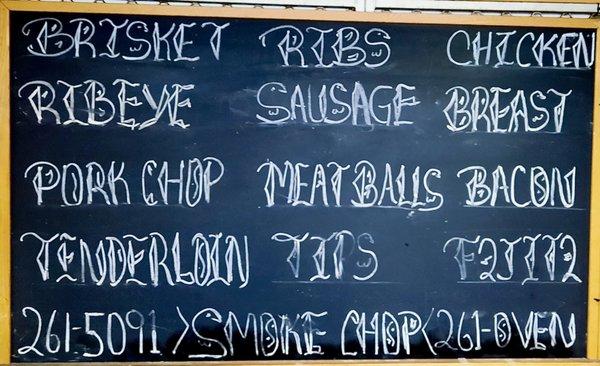 BRISKET RIBS CHICKEN
RIBEYE SAUSAGE BREAST
PORK CHOP MEATBALLS BACON
TENDERLOIN TIPS
261-5091 >SMOKE CHOP< 261-OVEN